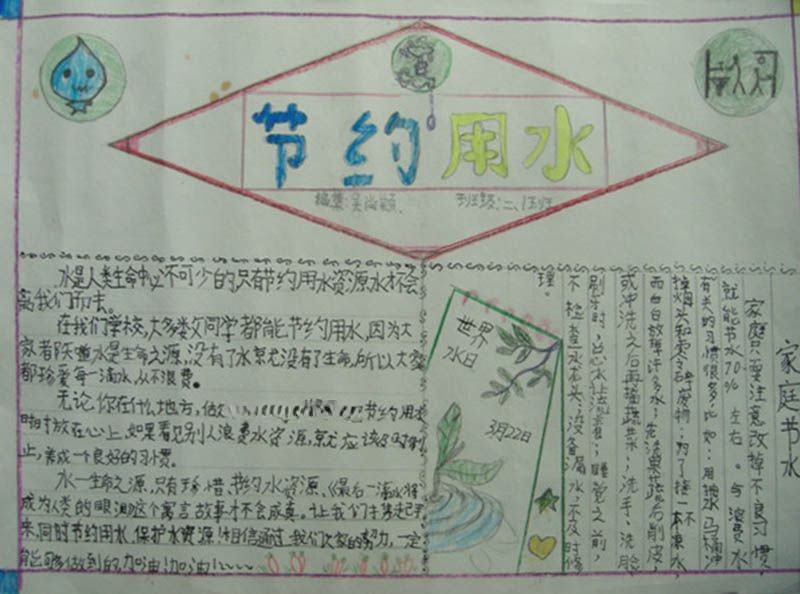 节约用水
编集:吴尚颖、 班级:二、1班
水是人类生命中必不可少的只有节约用水资源水才不会
离我们而去。
在我们学校,大多数同学都能节约用水,因为大
家都懂水是生命之源,没有了水就没有了生命,所以大家
都珍爱每一滴水,从不浪费。
无论你在什么地方,做 把节约用水
时时放在心上,如果看见别人浪费水资源,就应该及时制
止,养成一个良好的习惯。
水—生命之源,只有珍惜、节约水资源,《最后一滴水将
成为人类的眼泪》这个寓言故事才不会成真。让我们
来,同时节约用水,保护水资源!相信通过我们大家的努力,一定
能够做到的,加油!加油!
世界
水日
3月22日
家庭节水
家庭只要注意改掉不良习惯,
就能节水70%左右。与浪费水
有关的习惯很多,比如:用抽水马桶冲
掉烟头和零碎废物;为了接一杯凉水,
而白白放掉许多水;先洗果蔬后削皮,
或冲洗之后再择蔬菜;洗手、洗脸、
刷牙时,总让水流着;睡觉之前,
不检查水龙头;设备漏水,不及时修
理。